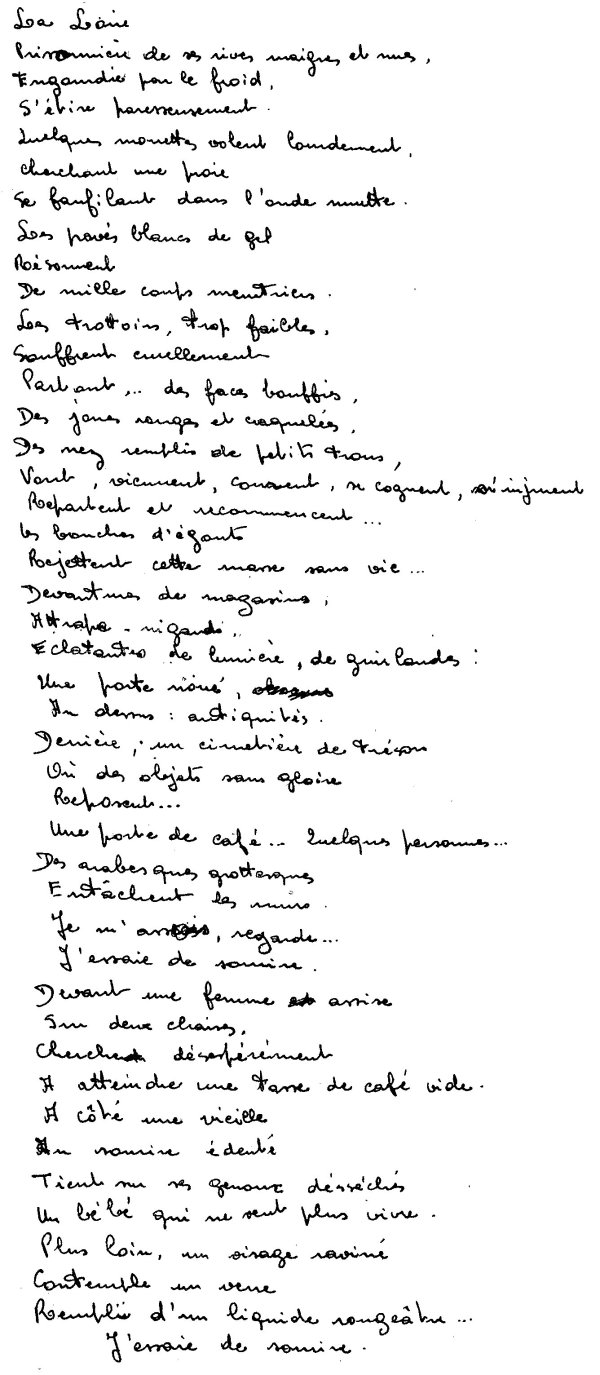 La Loire
Prisonnière de ses rives maigres et nues,
Engourdie par le froid,
S'étire paresseusement.
Quelques mouettes volent lourdement,
cherchant une proie
Se faufilant dans l'onde muette.
Les pavés blancs de gel
Résonnent
De mille coups meurtriers.
Les trottoirs, trop faibles,
Souffrent cruellement
Partout,.. des faces bouffies,
Des joues rouges et craquelées,
Des nez remplis de petits trous,
Vont, viennent, courent, se cognent, s'injurient
Repartent et recommencent...
les bouches d'égouts
Rejettent cette masse sans vie...
Devantures de magasins,
Attrape-nigauds,
Eclatantes de lumière, de guirlandes :
Une porte
Au dessus : antiquités.
Derrière, un cimetière de trésors
Où des objets sans gloire
Reposent...
Une porte de café... Quelques personnes...
Des arabesques grottesques
Entâchent les murs.
Je m'assois, regarde...
J'essaie de sourire.
Devant une femme assise
Sur deux chaises,
Cherche désespérément
A atteindre une tasse de café vide.
A côté une vieille
Au sourire édenté
Tient sur ses genoux désséchés
Un bébé qui ne veut plus vivre.
Plus loin, un visage raviné
Contemple un verre
Rempli d'un liquide rougeâtre...
J'essaie de sourire.